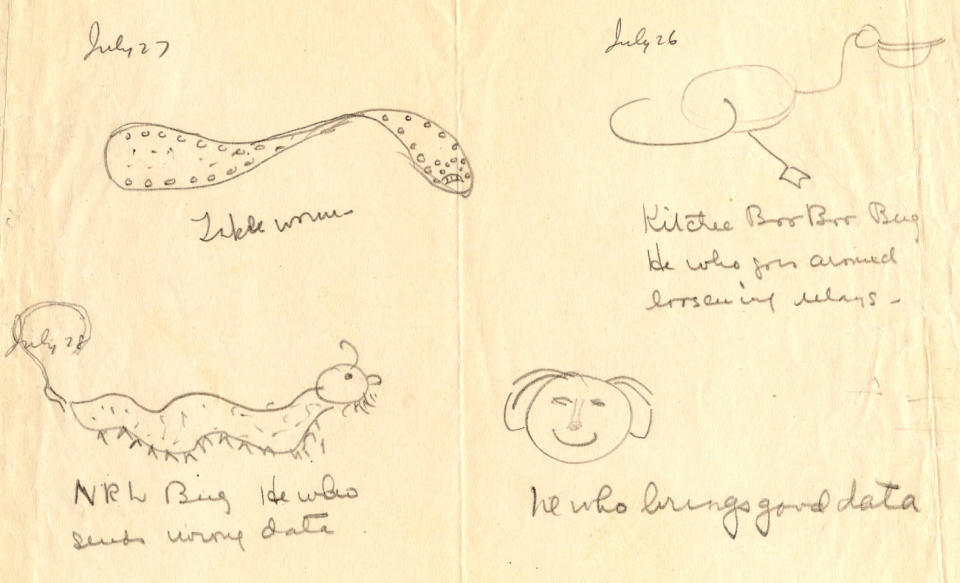 July 27
July 26
Table worm
Kitchee Boo Boo Bug
He who goes around
loosening relays -
July 28
NRL Bug He who
sends wrong data
he who brings good data